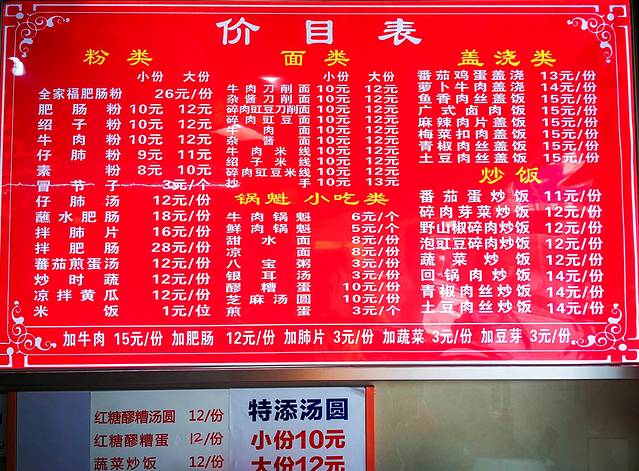 价目表
粉类
小份 大份
全家福肥肠粉 26元/份
肥肠粉 10元 12元
绍子粉 10元 12元
牛肉粉 10元 12元
仔肺粉 9元 11元
素粉 8元 10元
冒节子 3元/个
仔肺汤 12元/份
蘸水肥肠 18元/份
拌肺片 16元/份
拌肥肠 28元/份
蕃茄煎蛋汤 12元/份
炒时蔬 12元/份
凉拌黄瓜 12元/份
米饭 1元/位
面类
小份 大份
牛肉刀削面 10元 12元
杂酱刀削面 10元 12元
碎肉豇豆刀削面 10元 12元
碎肉豇豆面 10元 12元
牛肉面 10元 12元
杂酱面 10元 12元
牛肉米线 10元 12元
绍子米线 10元 12元
抄手 10元 13元
锅魁 小吃类
牛肉锅魁 6元/个
鲜肉锅魁 5元/个
甜水面 8元/份
凉面 8元/份
八宝粥 3元/份
银耳汤 3元/份
醪糟蛋 10元/份
芝麻汤圆 10元/份
煎蛋 3元/个
盖浇类
番茄鸡蛋盖浇 13元/份
萝卜牛肉盖浇 14元/份
鱼香肉丝盖饭 15元/份
广式卤肉饭 15元/份
麻辣肉片盖饭 15元/份
梅菜扣肉盖饭 15元/份
青椒肉丝盖饭 15元/份
土豆肉丝盖饭 15元/份
炒饭
番茄蛋炒饭 11元/份
碎肉芽菜炒饭 12元/份
野山椒碎肉炒饭 12元/份
泡豇豆碎肉炒饭 12元/份
蔬菜炒饭 12元/份
回锅肉炒饭 14元/份
青椒肉丝炒饭 14元/份
土豆肉丝炒饭 14元/份
加牛肉 15元/份 加肥肠 12元/份 加肺片 3元/份 加蔬菜 3元/份 加豆芽 3元/份
红糖醪糟汤圆 12/份
红糖醪糟蛋 12/份
蔬菜炒饭 12/份
特添汤圆
小份10元
大份12元